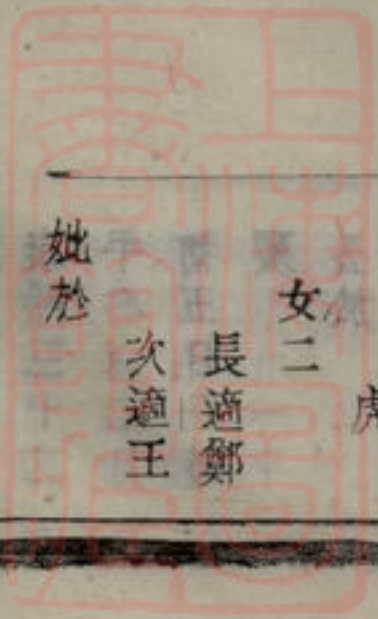 虎
女二
長適鄭
次適王
妣於